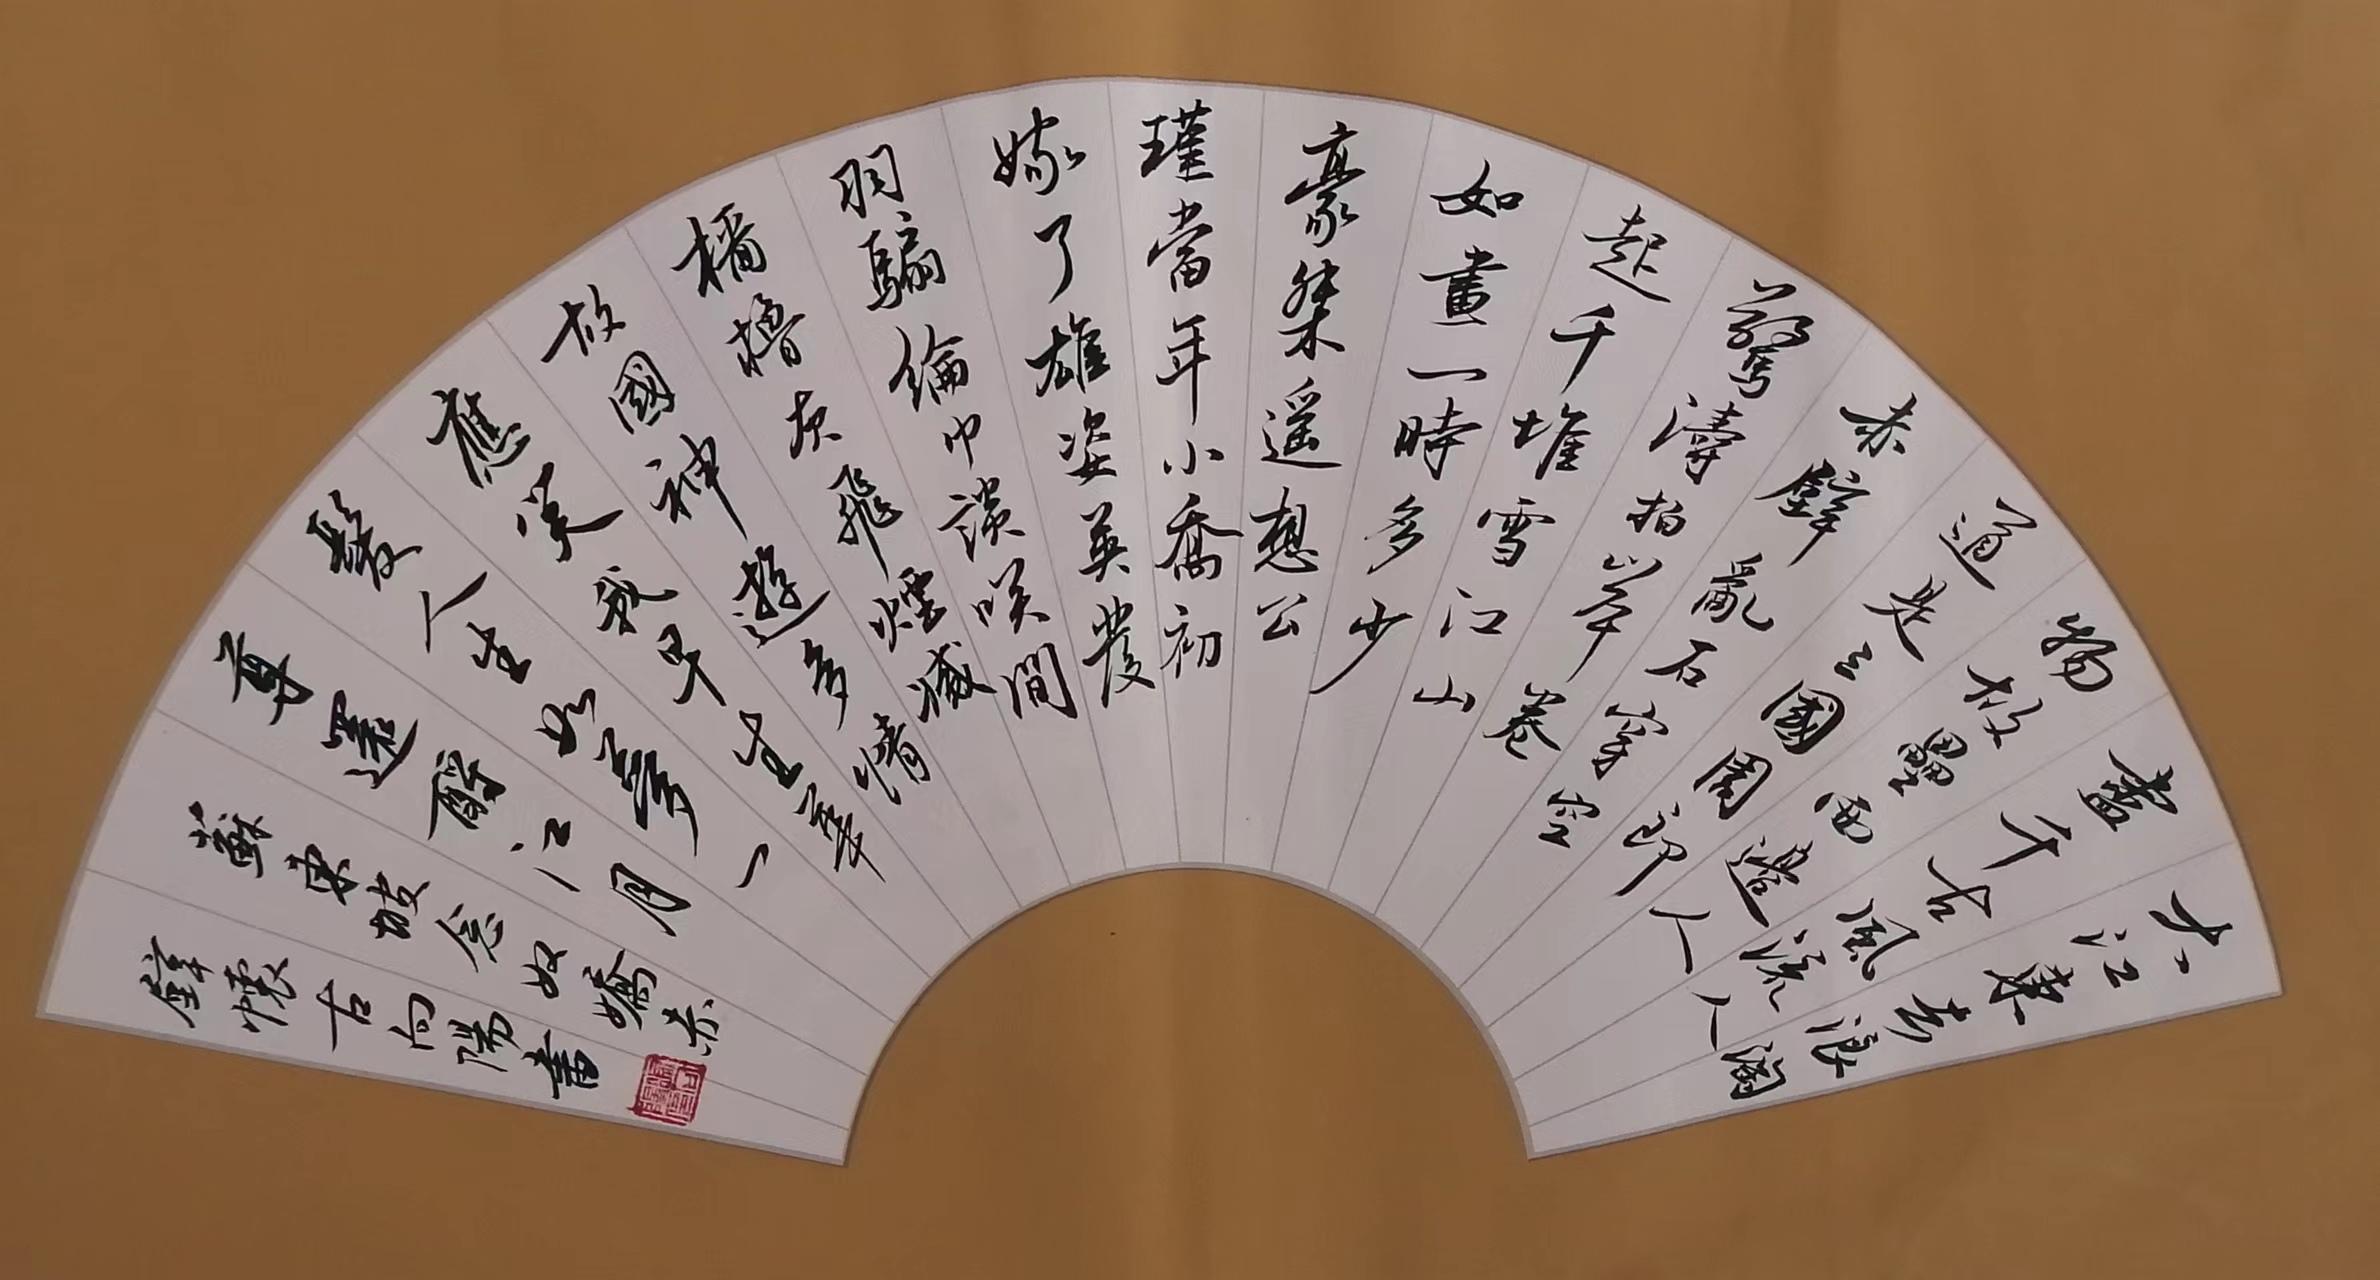 大江東去浪淘
盡千古風流人
物故壘西邊人
道是三國周郎
赤壁亂石穿空
驚濤拍岸卷
起千堆雪江山
如畫一時多少
豪桀遥想公
瑾當年小喬初
嫁了雄姿英發
羽騙綸巾談咲間
檣櫓灰飛煙滅
故國神遊多情
應笑我早生華
髮人生如夢一
尊還酹江月
蘇東坡念奴嬌赤
壁懷古向陽書